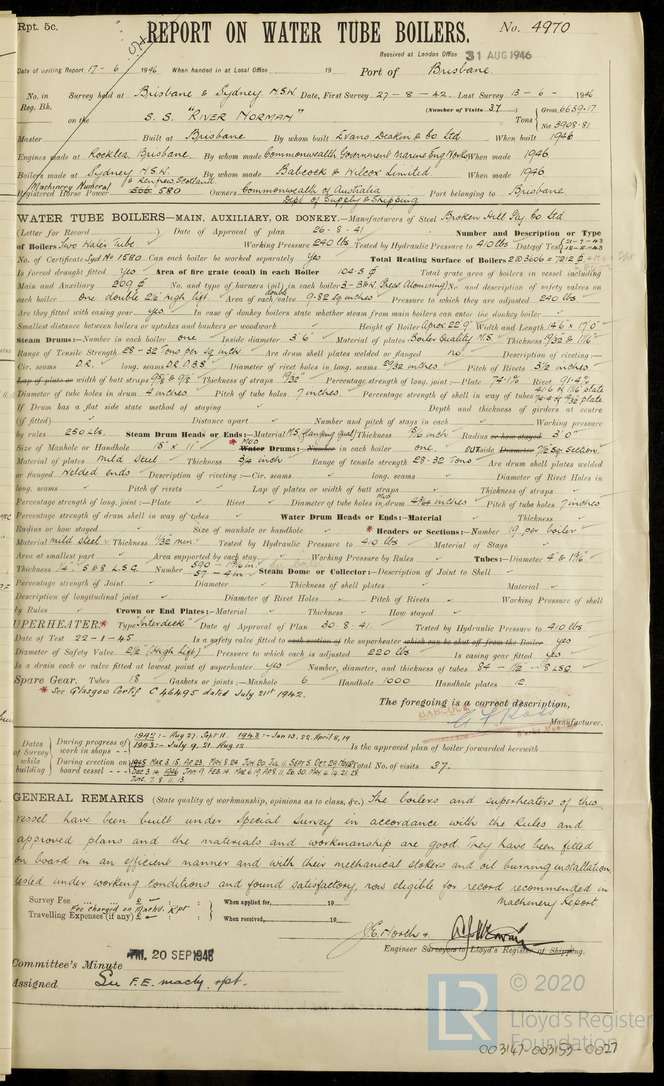 Rpt. 5c.
REPORT ON WATER TUBE BOILERS.
No. 4970
Received at London Office 31 AUG 1946
Date of writing Report 17-6 1946 When handed in at Local Office 19 Port of Brisbane
No. in Survey held at Brisbane & Sydney N.S.W. Date, First Survey 27-8-42 Last Survey 13-6- 1946
Reg. Bk. (Number of Visits 37)
on the S.S. "RIVER NORMAN" Tons Gross 6659.17 Net 3908.81
Master Built at Brisbane By whom built Evans Deakin & Co Ltd. When built 1946
Engines made at Rocklea, Brisbane. By whom made Commonwealth Government Marine Eng Works When made 1946
Boilers made at Sydney N.S.W. & Renfrew Scotland By whom made Babcock & Wilcox Limited. When made 1946
Machinery Numeral
Registered Horse Power 580 Owners Commonwealth of Australia Dept of Supply & Shipping Port belonging to Brisbane
WATER TUBE BOILERS—MAIN, AUXILIARY, OR DONKEY.—Manufacturers of Steel Broken Hill Pty Co. Ltd.
(Letter for Record ) Date of Approval of plan 26-8-41 Number and Description or Type
of Boilers Two Water Tube Working Pressure 240 lbs Tested by Hydraulic Pressure to 410 lbs Date of Test 21-7-43 12-8-43
No. of Certificate Syd No 1580 Can each boiler be worked separately Yes Total Heating Surface of Boilers 2 @ 3606 = 7212
Is forced draught fitted Yes Area of fire grate (coal) in each Boiler 104.5 Total grate area of boilers in vessel including
Main and Auxiliary 209 No. and type of burners (oil) in each boiler 3-B&W Press Atomising No and description of safety valves on
each boiler One double 2½" high lift Area of each valve 9.82 sq inches Pressure to which they are adjusted 240 lbs
Are they fitted with easing gear Yes In case of donkey boilers state whether steam from main boilers can enter the donkey boiler
Smallest distance between boilers or uptakes and bunkers or woodwork Height of Boiler Width and Length 14'6" x 17'0"
Steam Drums:—Number in each boiler one Inside diameter 3'6" Material of plates Boiler Quality M.S. Thickness
Range of Tensile Strength 28-32 Tons per sq inch Are drum shell plates welded or flanged no Description of riveting:—
Cir. seams D.R. long. seams D.R. D.B.S. Diameter of rivet holes in long. seams 29/32 inches Pitch of Rivets 3½ inches
Lap of plate or width of butt straps Thickness of straps Percentage strength of long. joint:—Plate 74.1% Rivet 91.4%
Diameter of tube holes in drum 4 inches Pitch of tube holes 7 inches Percentage strength of shell in way of tubes
If Drum has a flat side state method of staying Depth and thickness of girders at centre
(if fitted) Distance apart Number and pitch of stays in each Working pressure
by rules 250 lbs. Steam Drum Heads or Ends:—Material M.S. flanging qual Thickness 15/16 inch Radius or how stayed 3'0"
Size of Manhole or Handhole 15" x 11" * Mud Water Drums:—Number in each boiler one. outside Diameter 7½ sq. section
Material of plates mild steel Thickness ¾ inch Range of tensile strength 28-32 Tons Are drum shell plates welded
or flanged Welded ends Description of riveting:—Cir. seams long. seams Diameter of Rivet Holes in
long. seams Pitch of rivets Lap of plates or width of butt straps Thickness of straps
Percentage strength of long. joint:—Plate Rivet Diameter of tube holes in mud drum Pitch of tube holes 7 inches
Percentage strength of drum shell in way of tubes Water Drum Heads or Ends:—Material Thickness
Radius or how stayed Size of manhole or handhole * Headers or Sections:—Number 19 per boiler
Material mild steel Thickness Tested by Hydraulic Pressure to 410 lbs Material of Stays
Area at smallest part Area supported by each stay Working Pressure by Rules Tubes:—Diameter
Thickness Number Steam Dome or Collector:—Description of Joint to Shell
Percentage strength of Joint Diameter Thickness of shell plates Material
Description of longitudinal joint Diameter of Rivet Holes Pitch of Rivets Working Pressure of shell
by Rules Crown or End Plates:—Material Thickness How stayed
UPERHEATER.* Type "Interdeck" Date of Approval of Plan 30-8-41. Tested by Hydraulic Pressure to 410 lbs
Date of Test 22-1-45 Is a safety valve fitted to each section of the superheater which can be shut off from the Boiler Yes
Diameter of Safety Valve 2½" (High Lift) Pressure to which each is adjusted 220 lbs Is easing gear fitted Yes
Is a drain cock or valve fitted at lowest point of superheater Yes Number, diameter, and thickness of tubes 84 - 1½ - 8 LSG.
Spare Gear. Tubes 18 Gaskets or joints:—Manhole 6 Handhole 1000 Handhole plates 12
* See Glasgow Certif C 46495 dated July 21st 1942.
The foregoing is a correct description,
Manufacturer.
Dates of Survey while building
During progress of work in shops - - 1942:- Aug 27. Sept 11. 1943:- Jan 13, 22. April 8, 19
1943:- July 9, 21. Aug 12 Is the approved plan of boiler forwarded herewith
During erection on board vessel - - - 1945 Mar 3. 15 Ap 23 May 8. 24 Jun 20 Jul 11 Sept 5 Oct 29 Total No. of visits 37.
Dec 3. 1946 Jan 9 Feb 14 Mar 6. 19 Apr 11. 26. 30. May 4. 14. 21. 28
June 7. 8. 11. 13.
GENERAL REMARKS (State quality of workmanship, opinions as to class, &c.) The boilers and superheaters of this
vessel have been built under special survey in accordance with the Rules and
approved plans and the materials and workmanship are good. They have been fitted
on board in an efficient manner and with their mechanical stokers and oil burning installation,
tested under working conditions and found satisfactory, now eligible for record recommended in
Machinery Report.
Survey Fee ... £ : : When applied for, 19
Fee charged on Machy. Rpt
Travelling Expenses (if any) £ : : When received, 19
Engineer Surveyors to Lloyd's Register of Shipping.
FRI. 20 SEP 1946
Committee's Minute
Assigned See F.E. machy. rpt.
© 2020
LR
Lloyd's Register
Foundation
003147-003153-0027